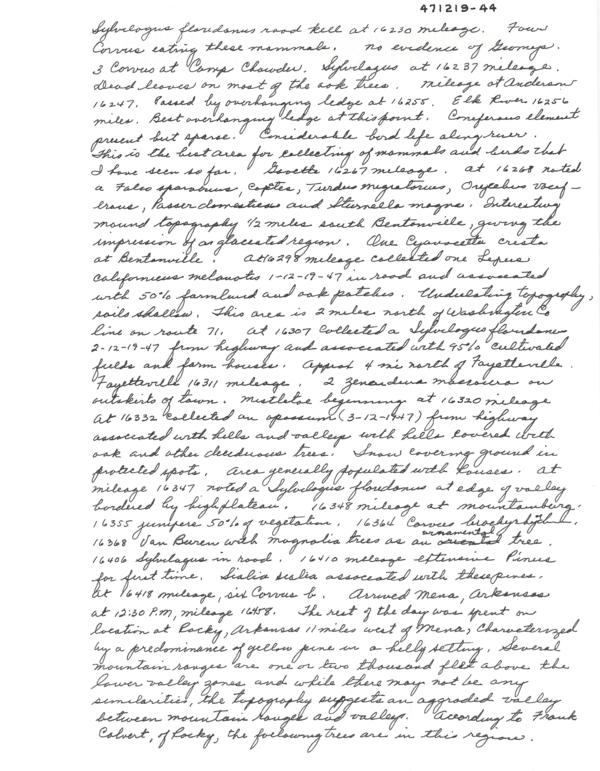 471219-44
Sylvilagus floridanus road kill at 16230 mileage. Four
Corvus eating these mammals. No evidence of Geomys.
3 Corvus at Camp Chowder. Sylvilagus at 16237 mileage.
Dead leaves on most of the oak trees. Mileage at Anderson
16247. Passed by overhanging ledge at 16255. Elk River 16256
miles. Best overhanging ledge at this point. Coniferous element
present but sparse. Considerable bird life along river.
This is the best area for collecting of mammals and birds that
I have seen so far. Gravette 16267 mileage. At 16268 noted
a Falco sparverius, Colaptes, Turdus migratorius, Oxyechus vocif-
erous, Passer domesticus and Sturnella magna. Interesting
mound topography 1/2 miles south Bentonville, giving the
impression of a glaciated region. One Cyanocitta crista
at Bentonville. At 16298 mileage collected one Lepus
californicus melanotis 1-12-19-47 in road and associated
with 50% farmland and oak patches. Undulating topography,
soils shallow. This area is 2 miles north of Washington Co
line on route 71. At 16307 collected a Sylvilagus floridanus
2-12-19-47 from highway and associated with 95% cultivated
fields and farm houses. Approx 4 mi north of Fayetteville.
Fayetteville 16311 mileage. 2 Zenaidura macroura on
outskirts of town. Mistletoe beginning at 16320 mileage
At 16332 collected an opossum (3-12-1947) from highway
associated with hills and valleys with hills covered with
oak and other deciduous trees. Snow covering ground in
protected spots. Area generally populated with houses. At
mileage 16347 noted a Sylvilagus floridanus at edge of valley
bordered by high plateau. 16348 mileage at Mountainburg.
16355 junipers 50% of vegetation. 16364 Corvus
16368 Van Buren with magnolia trees as an ornamental tree.
16406 Sylvilagus in road. 16410 mileage extensive Pinus
for first time. Sialia sialia associated with these pines.
At 16418 mileage, six Corvus b. Arrived Mena, Arkansas
at 12:30 P.M, mileage 16458. The rest of the day was spent on
location at Rocky, Arkansas 11 miles west of Mena, Characterized
by a predominance of yellow pine in a hilly setting. Several
mountain ranges are one or two thousand feet above the
lower valley zones and while there may not be any
similarities, the topography suggests an aggraded valley
between mountain ranges and valleys. According to Frank
Colvert, of Rocky, the following trees are in this region.